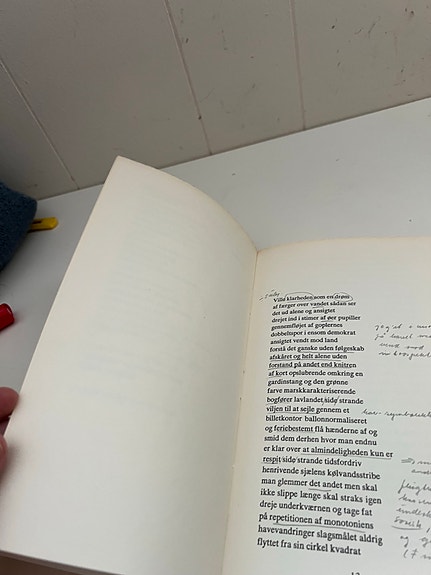 Ville klarheden som en drøm
af færger over vandet sådan ser
det ud alene og ansigtet
drejet ind i stimer af øer pupiller
gennemfløjet af goplernes
dobbeltspor i ensom demokrat
ansigtet vendt mod land
forstå det ganske uden følgeskab
afskåret og helt alene uden
forstand på andet end knitren
af kort opslubrende omkring en
gardinstang og den grønne
farve marskkarakteriserende
bogfører lavlandet side strande
viljen til at sejle gennem et
billetkontor ballonnormaliseret
og feriebestemt flå hænderne af og
smid dem derhen hvor man endnu
er klar over at almindeligheden kun er
respit side strande tidsfordriv
henrivende sjælens kølvandsstribe
man glemmer det andet men skal
ikke slippe længe skal straks igen
dreje underkværnen og tage fat
på repetitionen af monotoniens
havevandringer slagsmålet aldrig
flyttet fra sin cirkel kvadrat